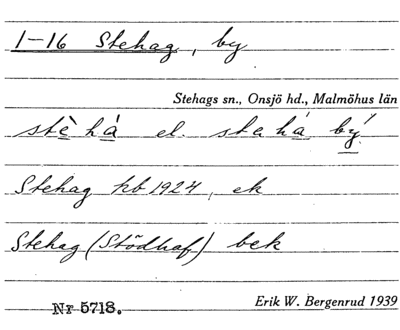 1-16 Stehag, by
Stehags sn., Onsjö hd., Malmöhus län
stè há el. stahá bý
Stehag kb 1924, ek
Stehag (Stödhaf) bek
Nr 5718.
Erik W. Bergenrud 1939